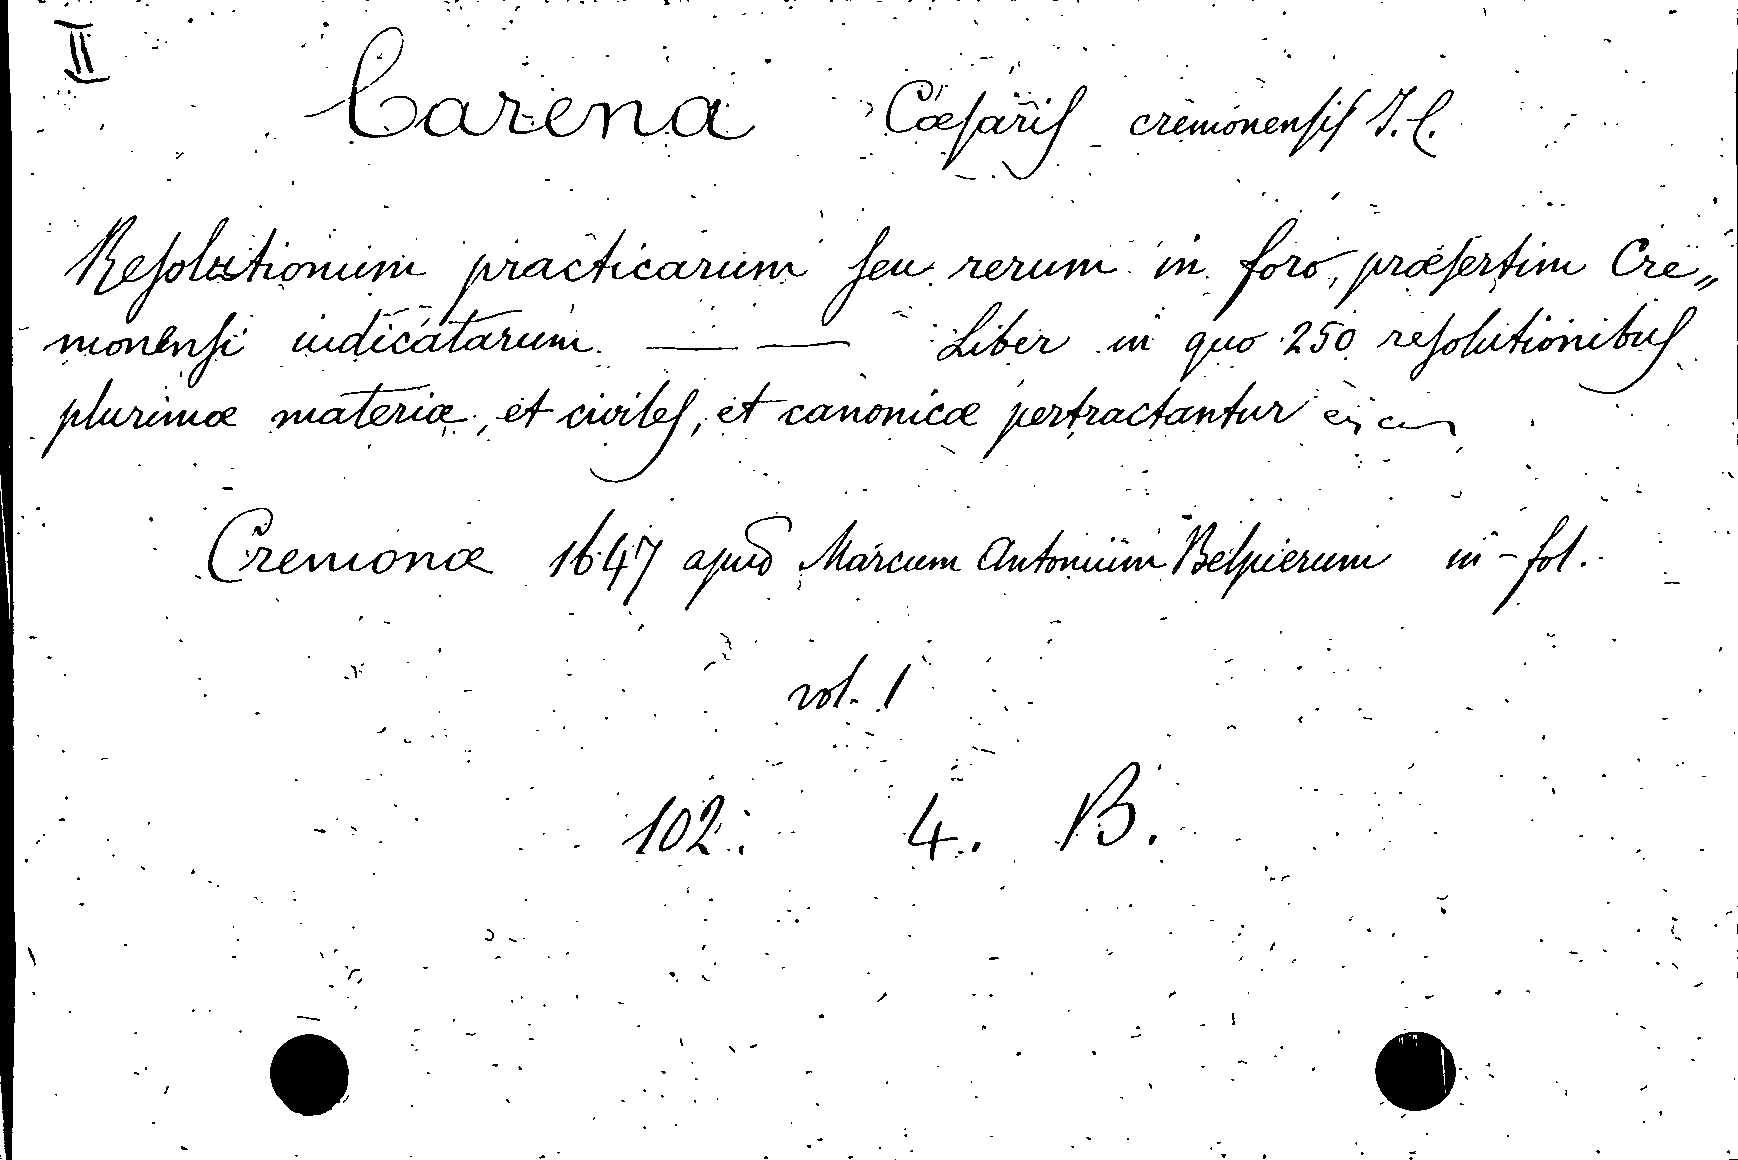 II
Carena Cæsaris cremonensis I. C.
Resolutionum practicarum seu rerum in foro, præsertim Cre„
monensi iudicatarum — — Liber in quo 250 resolutionibus
plurimæ materiæ, et civiles, et canonicæ pertractantur
Cremonæ 1647 apud Marcum Antonium Belpierum in-fol.
vol. 1
102. 4. B.